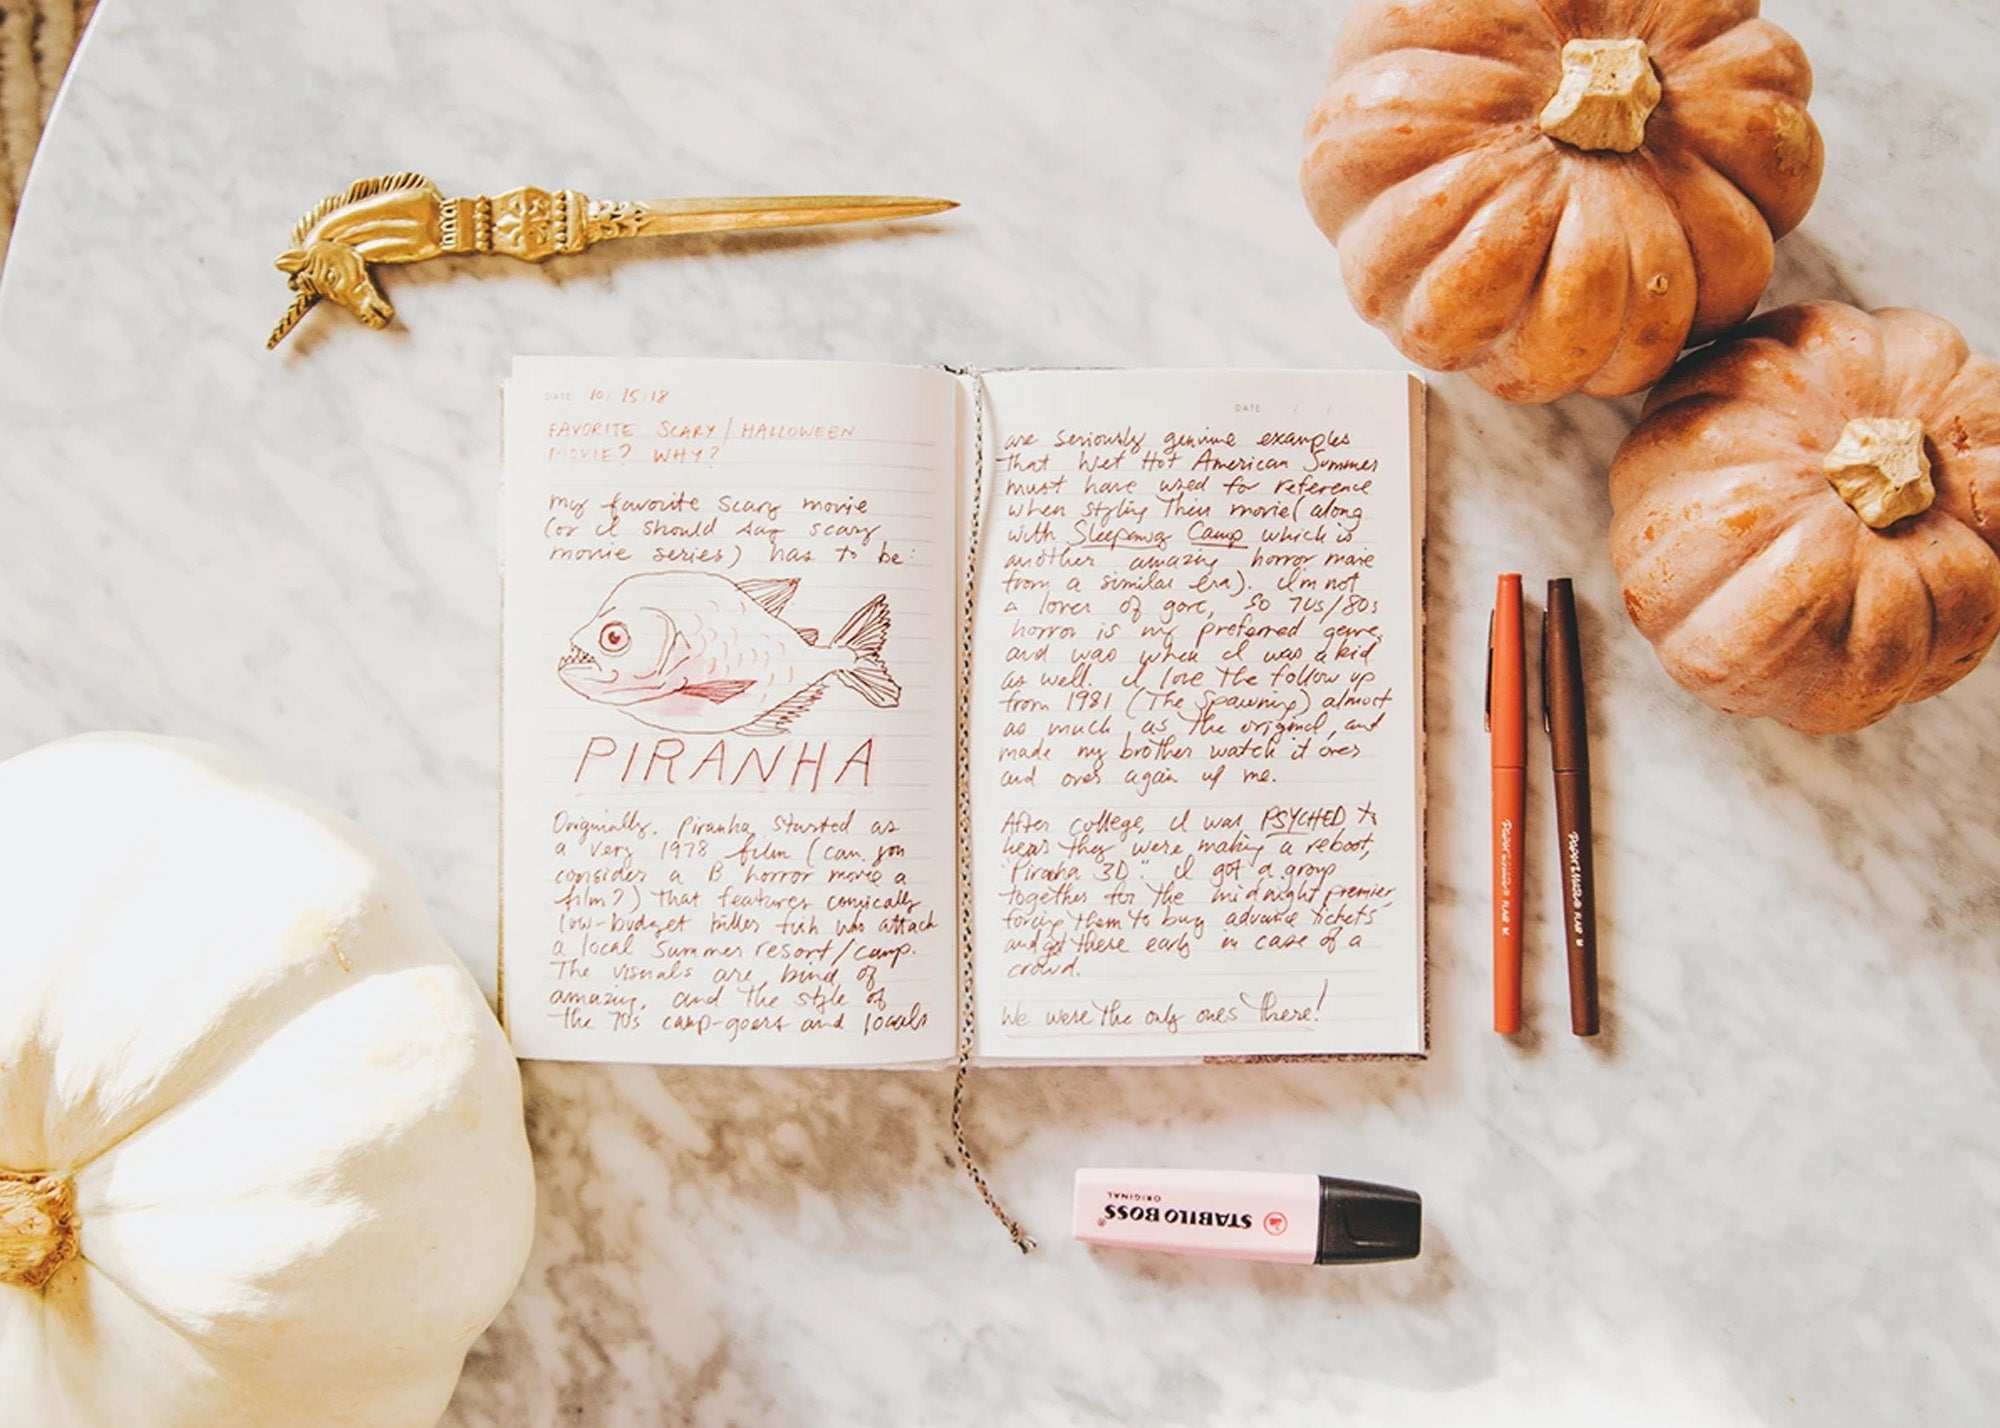 DATE 10/15/18
FAVORITE SCARY/HALLOWEEN
MOVIE? WHY?
my favorite scary movie
(or I should say scary
movie series) has to be:
PIRANHA
Originally, Piranha started as
a very 1978 film (can you
consider a B horror movie a
film?) that features comically
low-budget killer fish who attack
a local summer resort/camp.
The visuals are kind of
amazing, and the style of
the 70s camp-goers and locals
DATE / /
are seriously genuine examples
that Wet Hot American Summer
must have used for reference
when styling their movie (along
with Sleepaway Camp which is
another amazing horror movie
from a similar era). I'm not
a lover of gore, so 70s/80s
horror is my preferred genre,
and was when I was a kid
as well. I love the follow up
from 1981 (The Spawning) almost
as much as the original, and
made my brother watch it over
and over again w/ me.
After college, I was PSYCHED to
hear they were making a reboot,
"Piranha 3D". I got a group
together for the midnight premier,
forcing them to buy advance tickets
and get there early in case of a
crowd.
We were the only ones there!
PAPERMATE FLAIR M
PAPERMATE FLAIR M
STABILO BOSS®
ORIGINAL